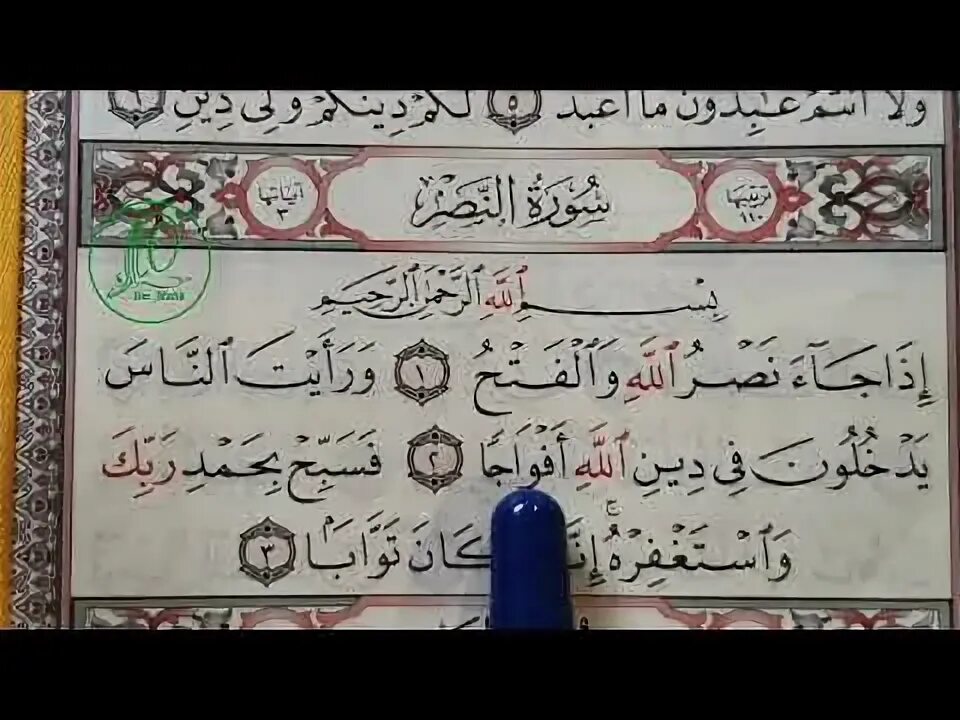 وَلَآ أَنتُمْ عَـٰبِدُونَ مَآ أَعْبُدُ ٥ لَكُمْ دِينُكُمْ وَلِىَ دِينِ ٦
ترتيبها ١١٠ سُورَةُ النَّصْرِ آياتها ٣
بِسْمِ ٱللَّهِ ٱلرَّحْمَـٰنِ ٱلرَّحِيمِ
إِذَا جَآءَ نَصْرُ ٱللَّهِ وَٱلْفَتْحُ ١ وَرَأَيْتَ ٱلنَّاسَ
يَدْخُلُونَ فِى دِينِ ٱللَّهِ أَفْوَاجًا ٢ فَسَبِّحْ بِحَمْدِ رَبِّكَ
وَٱسْتَغْفِرْهُ ۚ كَانَ تَوَّابًۢا ٣